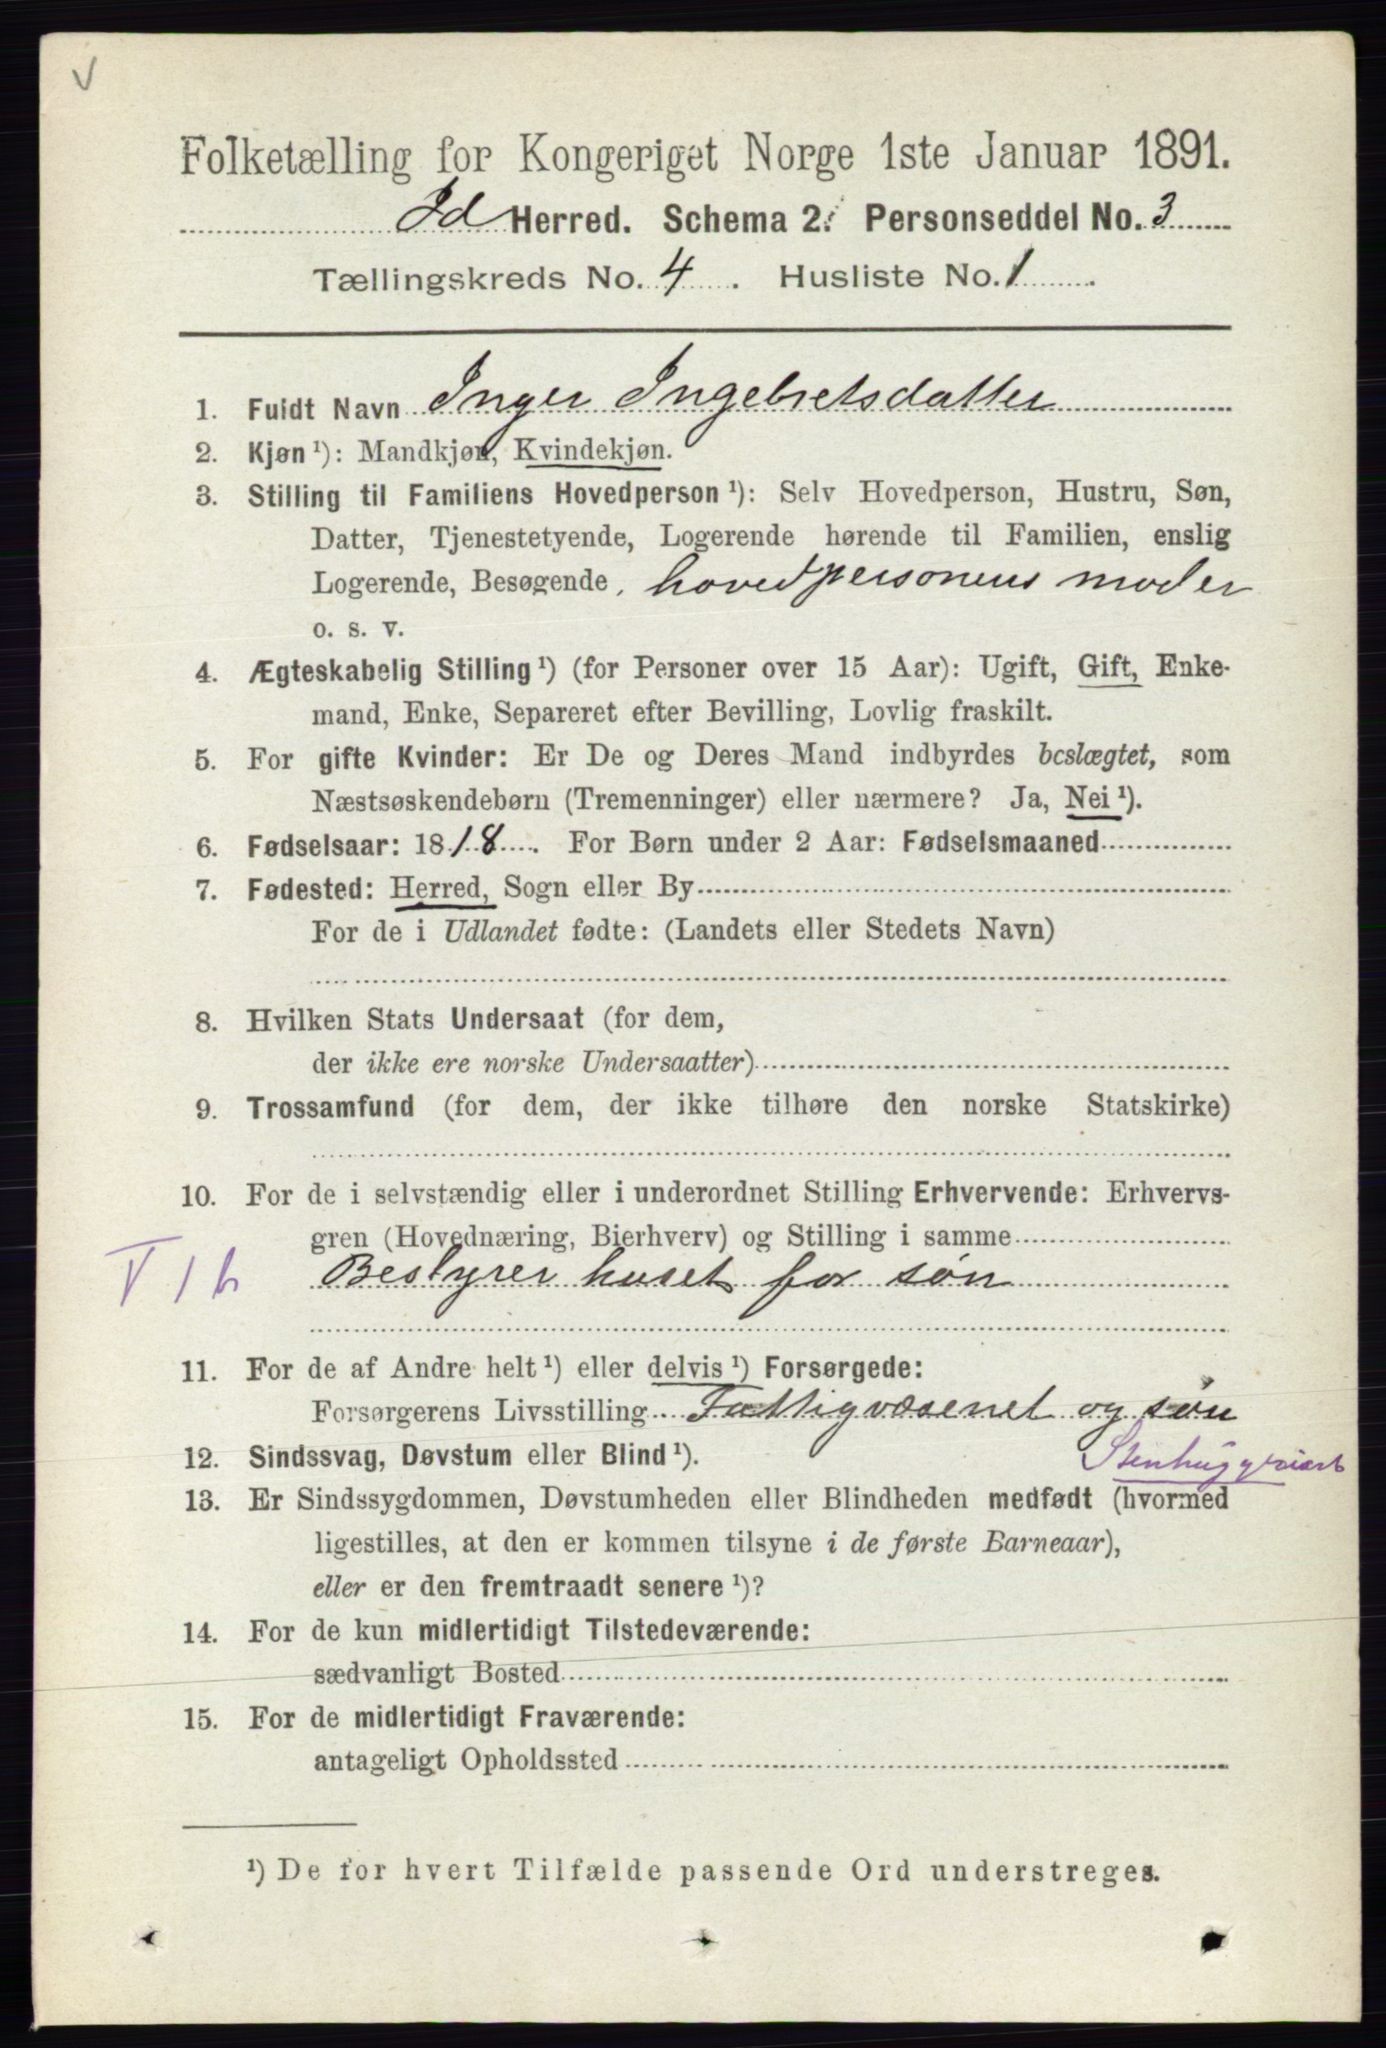 V
Folketælling for Kongeriget Norge 1ste Januar 1891.
Id Herred. Schema 2. Personseddel No. 3
Tællingskreds No. 4. Husliste No. 1.
1. Fuldt Navn Inger Ingebretsdatter
2. Kjøn ¹): Mandkjøn, Kvindekjøn.
3. Stilling til Familiens Hovedperson ¹): Selv Hovedperson, Hustru, Søn,
Datter, Tjenestetyende, Logerende hørende til Familien, enslig
Logerende, Besøgende, hovedpersonens moder
o. s. v.
4. Ægteskabelig Stilling ¹) (for Personer over 15 Aar): Ugift, Gift, Enke-
mand, Enke, Separeret efter Bevilling, Lovlig fraskilt.
5. For gifte Kvinder: Er De og Deres Mand indbyrdes beslægtet, som
Næstsøskendebørn (Tremenninger) eller nærmere? Ja, Nei ¹).
6. Fødselsaar: 1818. For Børn under 2 Aar: Fødselsmaaned
7. Fødested: Herred, Sogn eller By
For de i Udlandet fødte: (Landets eller Stedets Navn)
8. Hvilken Stats Undersaat (for dem,
der ikke ere norske Undersaatter)
9. Trossamfund (for dem, der ikke tilhøre den norske Statskirke)
10. For de i selvstændig eller i underordnet Stilling Erhvervende: Erhvervs-
gren (Hovednæring, Bierhverv) og Stilling i samme
V 1 b Bestyrer huset for søn
11. For de af Andre helt ¹) eller delvis ¹) Forsørgede:
Forsørgerens Livsstilling Fattigvæsenet og søn
12. Sindssvag, Døvstum eller Blind ¹).
13. Er Sindssygdommen, Døvstumheden eller Blindheden medfødt (hvormed
ligestilles, at den er kommen tilsyne i de første Barneaar),
eller er den fremtraadt senere ¹)?
14. For de kun midlertidigt Tilstedeværende:
sædvanligt Bosted
15. For de midlertidigt Fraværende:
antageligt Opholdssted
¹) De for hvert Tilfælde passende Ord understreges.